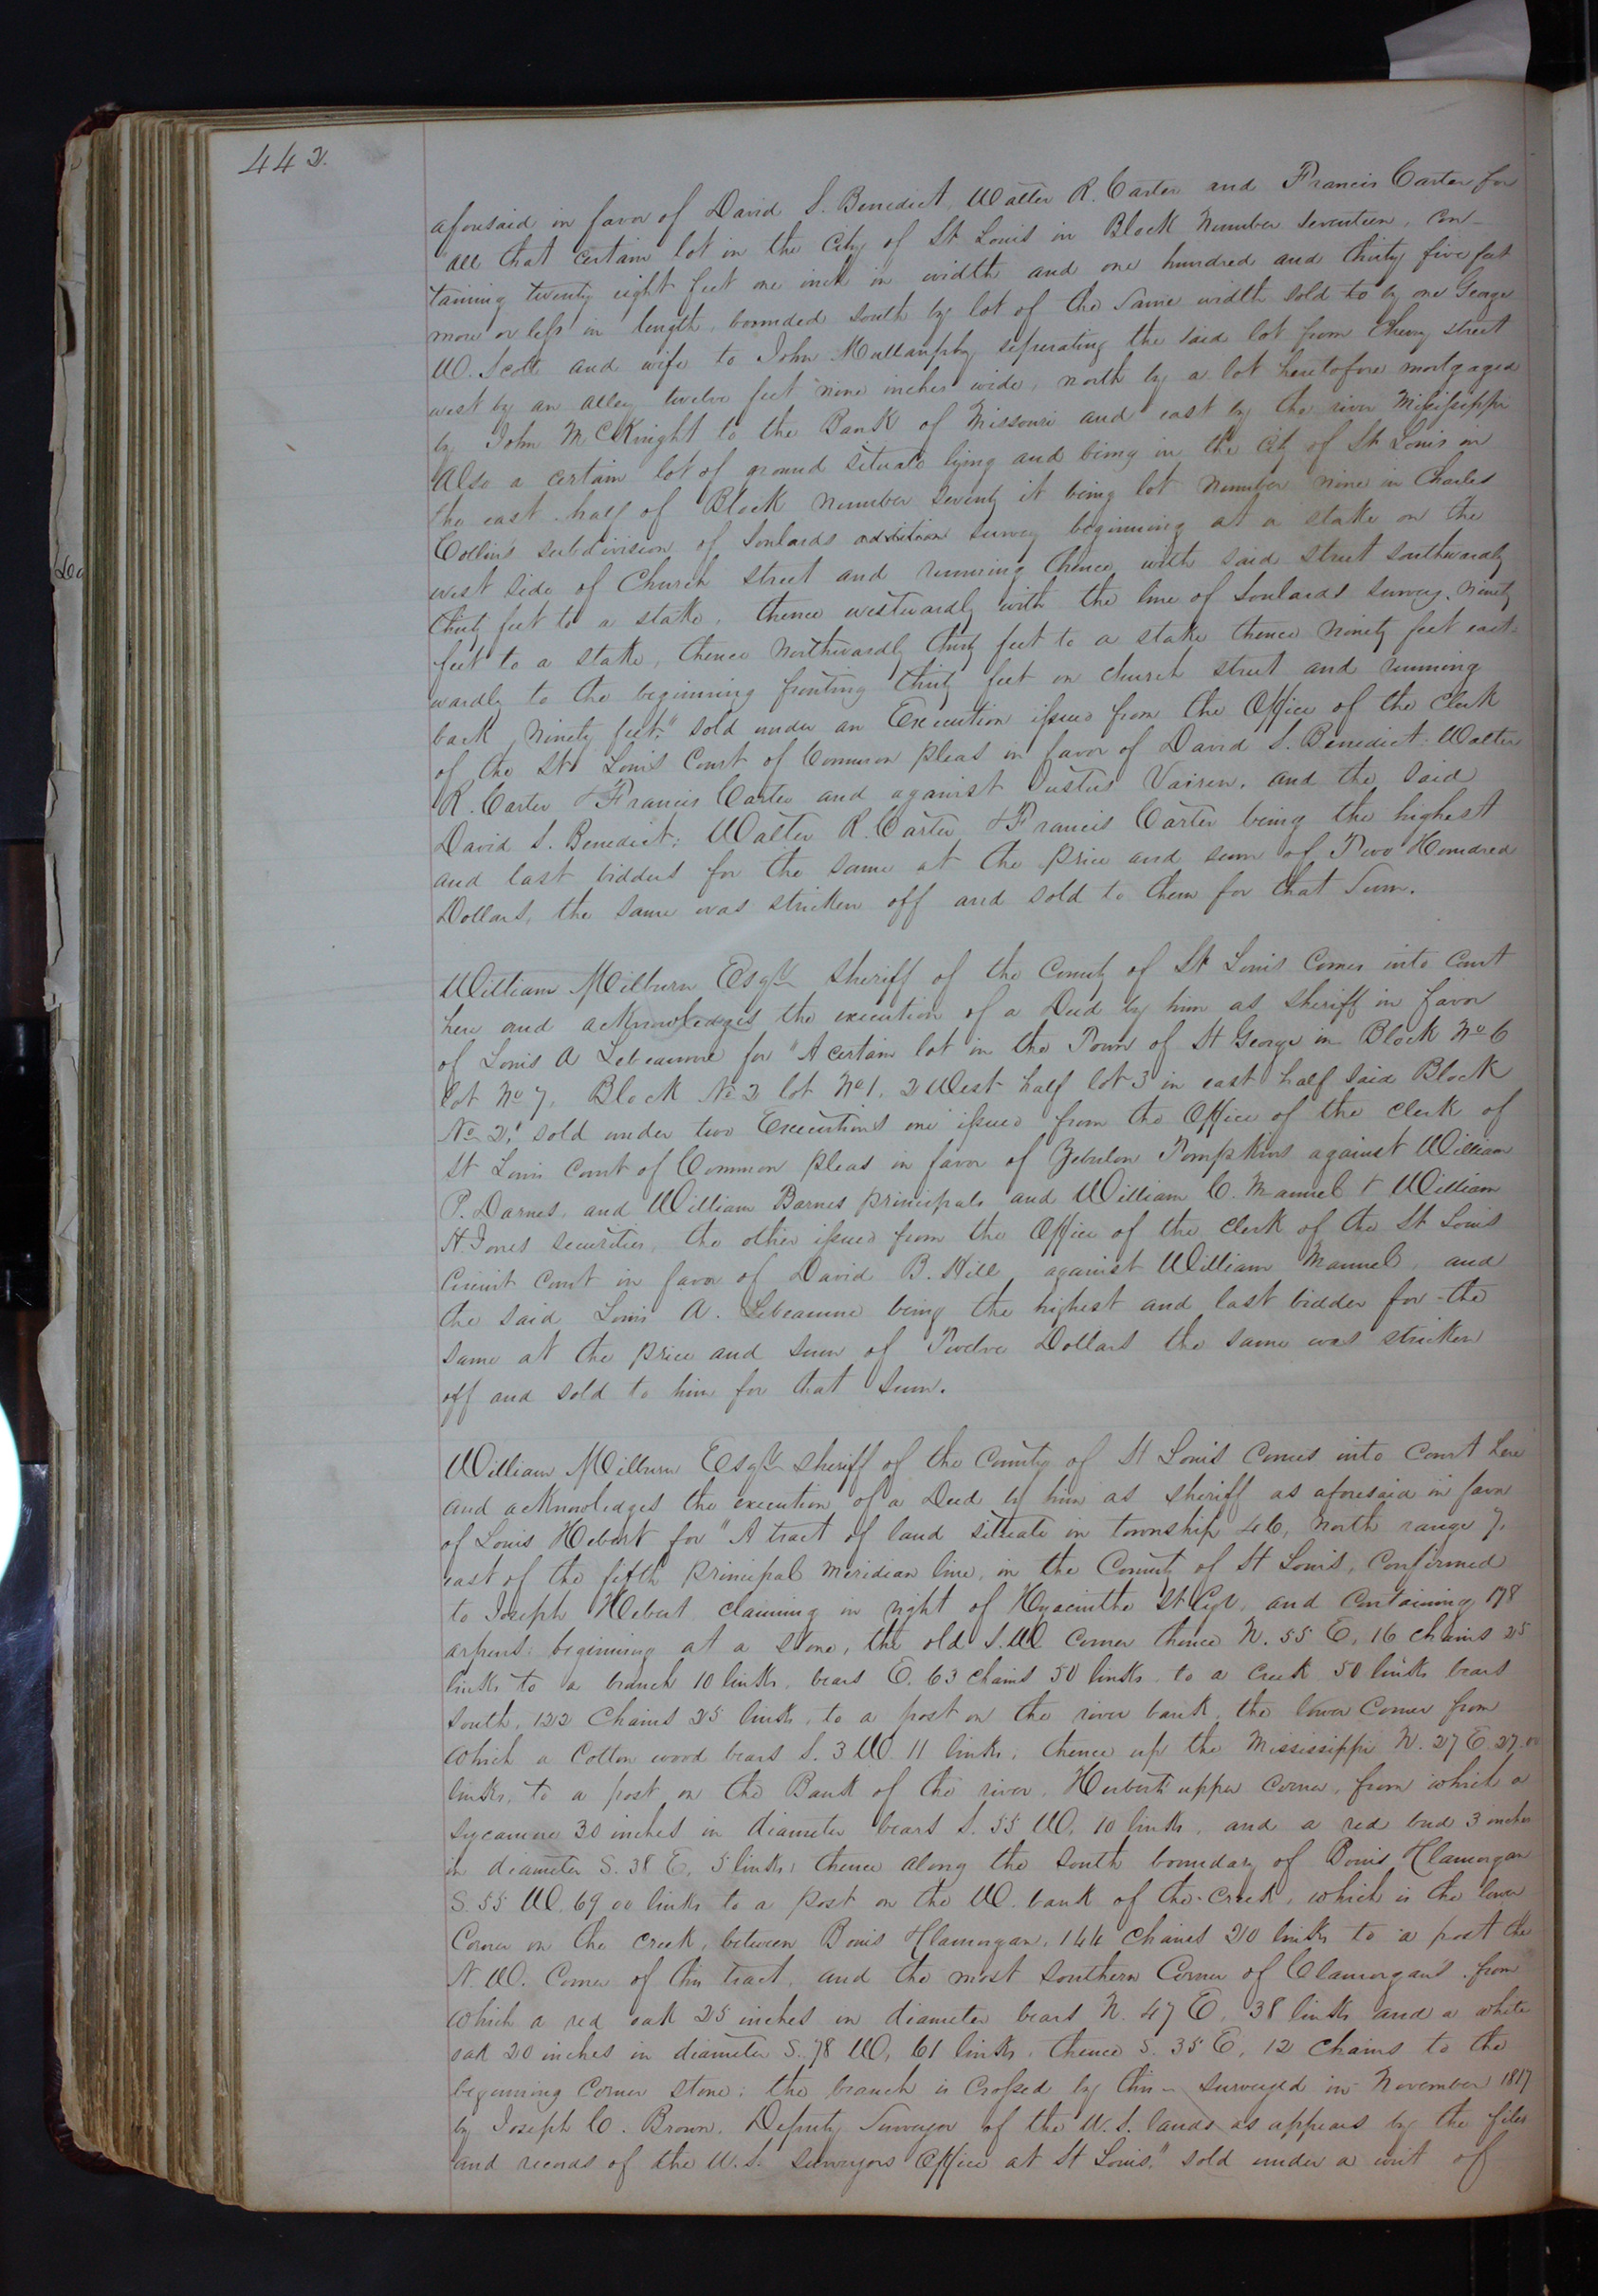 442.
aforesaid in favor of David S. Benedict, Walter R. Carter and Francis Carter for
"all that certain lot in the City of St Louis in Block Number Seventeen, con-
taining twenty eight feet one inch in width and one hundred and thirty five feet
more or less in length, bounded south by lot of the same width sold to by one George
W. Scott and wife to John Mullanphy seperating the said lot from Cherry street
west by an alley twelve feet nine inches wide, north by a lot heretofore mortgaged
by John McKnight to the Bank of Missouri and east by the river Missisippi
Also a certain lot of ground situate lying and being in the City of St Louis in
the east half of Block number seventy it being lot number nine in Charles
Collins subdivision of Soulards addition survey beginning at a stake on the
west side of Church street and running thence with said street southwardly
thirty feet to a stake, thence westwardly with the line of Soulards survey, ninety
feet to a stake, thence Northwardly thirty feet to a stake thence Ninety feet east-
wardly to the beginning fronting thirty feet on church street and running
back Ninety feet" sold under an Execution issued from the Office of the Clerk
of the St Louis Court of Common pleas in favor of David S. Benedict. Walter
R. Carter & Francis Carter and against Justus Vairin. and the said
David S. Benedict; Walter R. Carter & Francis Carter being the highest
and last bidders for the same at the price and sum of Two Hundred
Dollars, the same was stricken off and sold to them for that Sum.
William Milburn Esqr. sheriff of the County of St Louis Comes into Court
here and acknowledges the execution of a Deed by him as sheriff in favor
of Louis A Lebeaume for "A certain lot in the Town of St George in Block No 6
lot No 7, Block No 2 lot No 1. 2 West half lot 3 in east half said Block
No 2," sold under two Executions one issued from the Office of the clerk of
St Louis Court of Common pleas in favor of Zebulon Tompkins against William
P. Darnes, and William Barnes principals and William C. Manuel & William
H Jones securities, the other issued from the Office of the clerk of the St Louis
Circuit Court in favor of David B. Hill against William Manuel, and
the said Louis A. Lebeaume being the highest and last bidder for the
same at the price and sum of Twelve Dollars the same was stricken
off and sold to him for that Sum.
William Milburn Esqr. sheriff of the County of St Louis Comes into Court here
and acknowledges the execution of a Deed by him as sheriff as aforesaid in favor
of Louis Hebert for "A tract of land situate in township 46, North range 7,
east of the fifth principal meridian line, in the County of St Louis, Confirmed
to Joseph Hebert claiming in right of Hyacinthe St Cyr, and Containing 178
arpens: beginning at a stone, the old S.W. Corner thence N. 55 E, 16 chains 25
links to a branch 10 links, bears E. 63 chains 50 links to a creek 50 links bears
south, 122 Chains 25 links, to a post on the river bank, the lower Corner from
which a Cotton wood bears S. 3 W. 11 links; thence up the Mississippi N. 27 E. 27.00
links, to a post on the Bank of the river, Herberts upper Corner, from which a
Sycamore 30 inches in diameter bears S. 55 W, 10 links, and a red bud 3 inches
in diameter S. 38 E, 5 links; thence along the south boundary of Bouis Hlamorgan
S. 55 W. 69 00 links to a post on the W. bank of the creek, which is the lower
Corner on the creek, between Bouis Hlamorgan, 144 Chains 20 links to a post the
N.W. Corner of this tract, and the most southern Corner of Clamorgan's from
which a red oak 25 inches in diameter bears N. 47 E, 38 links and a white
oak 20 inches in diameter S. 78 W, 61 links, thence S. 35 E, 12 Chains to the
beginning Corner stone; the branch is Crossed by this - surveyed in November 1817
by Joseph C. Brown. Deputy Surveyor of the U.S. lands as appears by the files
and records of the U.S. Surveyors Office at St Louis," sold under a writ of